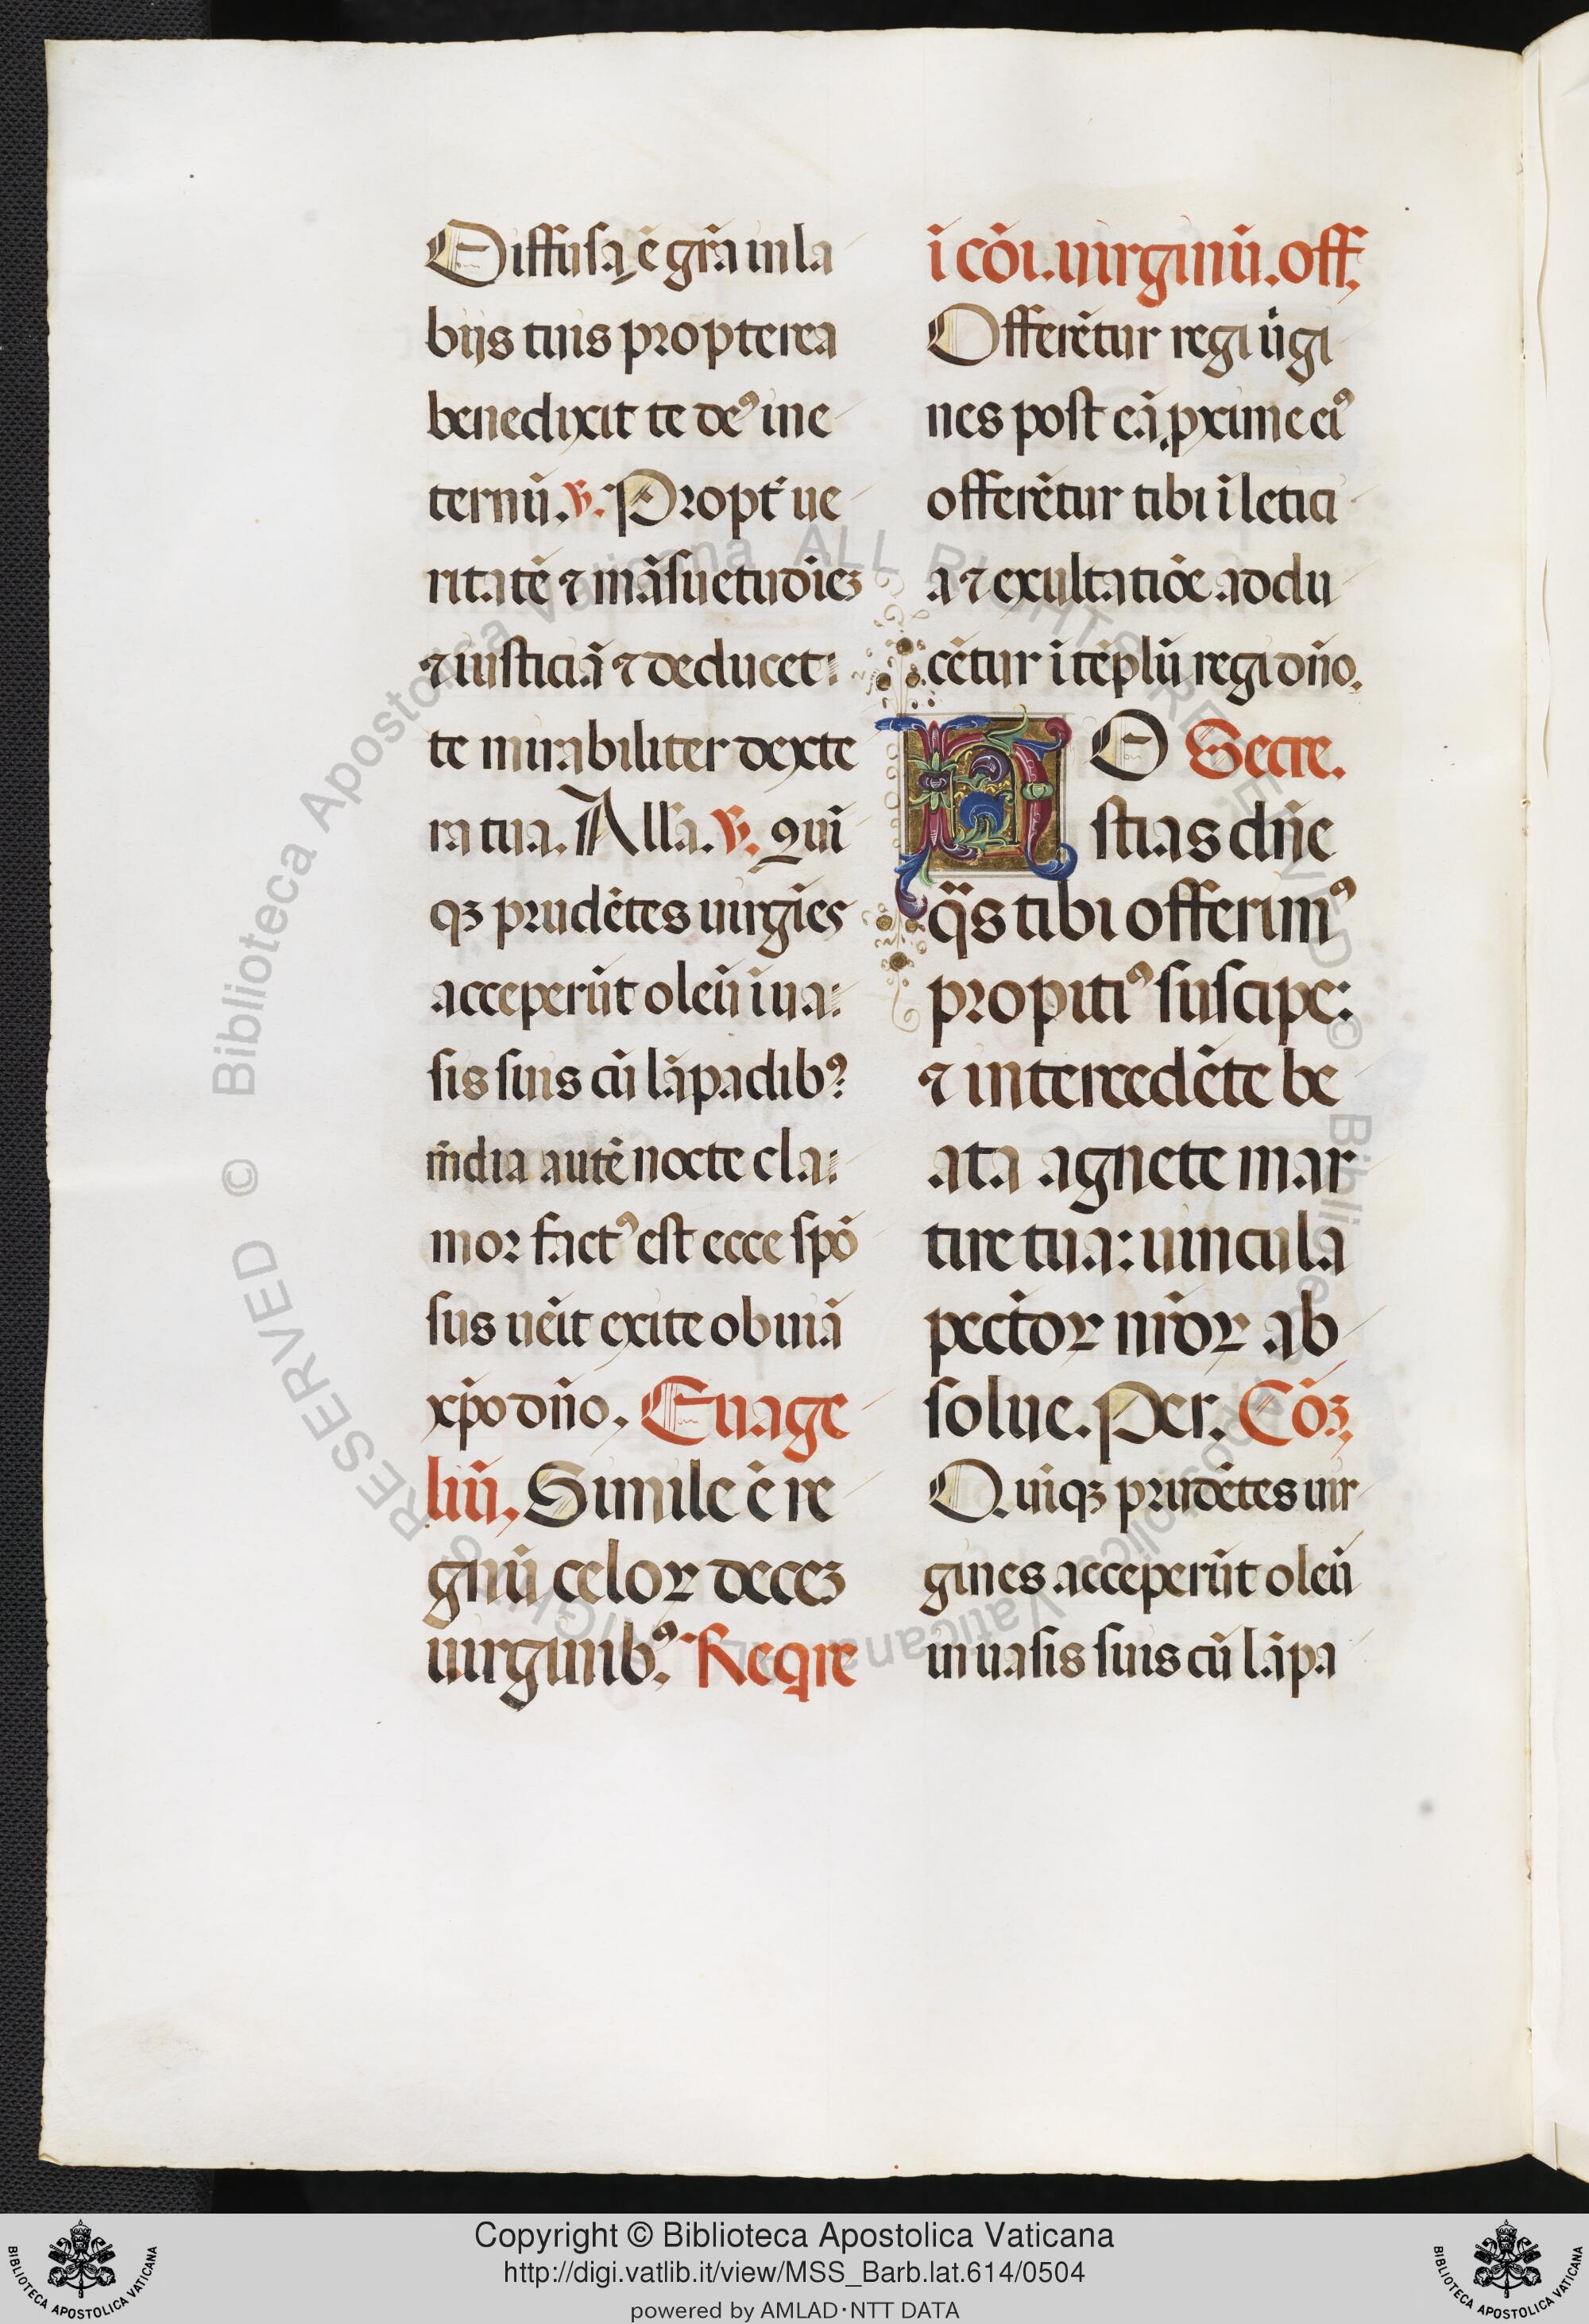 Diffusa ē gr̄a in la
bijs tuis propterea
benedixit te deꝰ in e
ternū. ℣. Propt̄ ue
ritatē ⁊ māsuetudīeꝫ
⁊ iusticiā ⁊ deducet:
te mirabiliter dexte
ra tua. All̄a. ℣. Qui
qꝫ prudētes uirgīes
acceperūt oleū ī ua:
sis suis cū lāpadibꝰ:
m̄dia autē nocte cla:
mor factꝰ est ecce spō
sus uēit exite obuiā
xp̄o dn̄o. Euāge
liū. Simile ē re
gnū celoꝝ deceꝫ
uirginibꝰ. Reqͥre
ī cōi. uirginū. off.
Offerētur regi ūgi
nes post eā ꝓxime eiꝰ
offerētur tibi ī letici
a ⁊ exultatiōe addu
cētur ī tēplū regi dn̄o.
HO Secre.
stias dn̄e
q̄s tibi offerimꝰ
propitiꝰ suscipe:
⁊ intercedēte be
ata agnete mar
tire tua: uincula
pect̄oꝝ nr̄oꝝ ab
solue. Per. Cōꝫ.
Quīqꝫ prudētes uir
gines acceperūt oleū
in uasis suis cū lāpa
© Biblioteca Apostolica Vaticana ALL RIGHTS RESERVED © Biblioteca Apostolica Vaticana ALL RIGHTS RESERVED
Copyright © Biblioteca Apostolica Vaticana
http://digi.vatlib.it/view/MSS_Barb.lat.614/0504
powered by AMLAD·NTT DATA
BIBLIOTECA APOSTOLICA VATICANA
BIBLIOTECA APOSTOLICA VATICANA